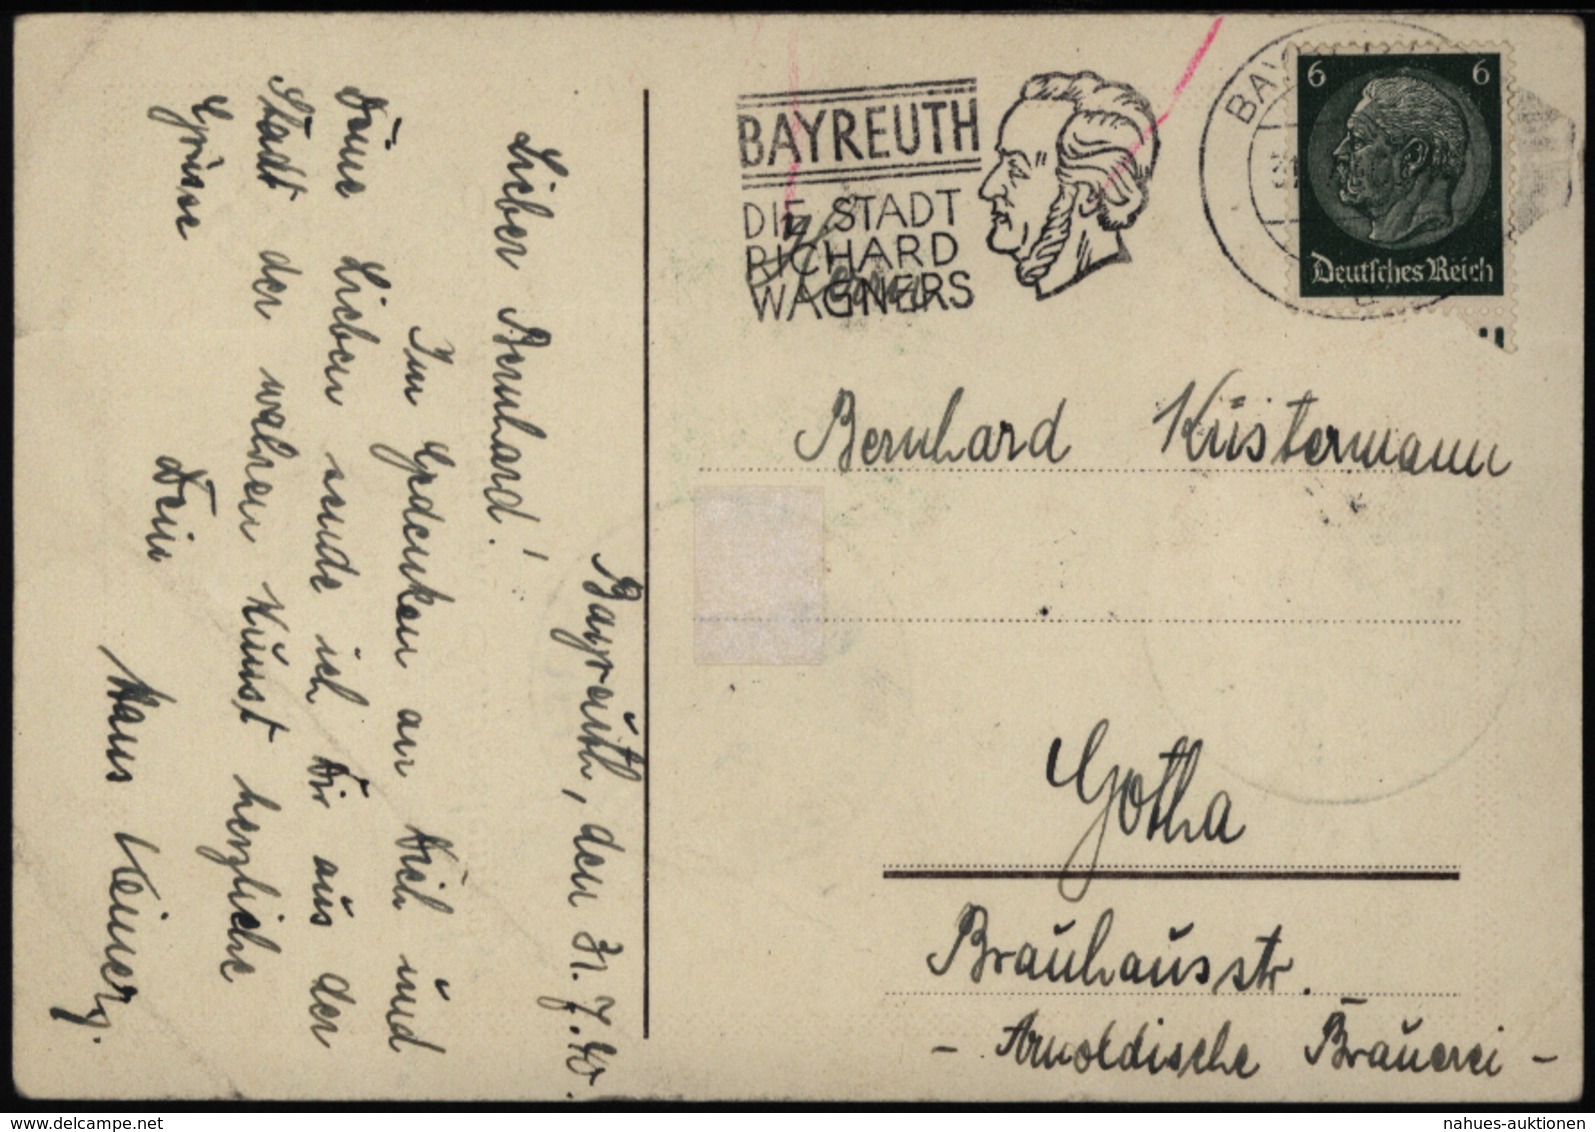 Bayreuth, den 31.7.40.
Lieber Bernhard!
Im Gedenken an Dich und
Deine Lieben sende ich Dir aus der
Stadt der wahren Kunst herzliche
Grüsse
Dein
Hans
BAYREUTH
DIE STADT
RICHARD
WAGNERS
BAY
6 6
Deutsches Reich
Bernhard Küstermann
Gotha
Brauhausstr.
- Arnoldische Brauerei -
nahues-auktionen